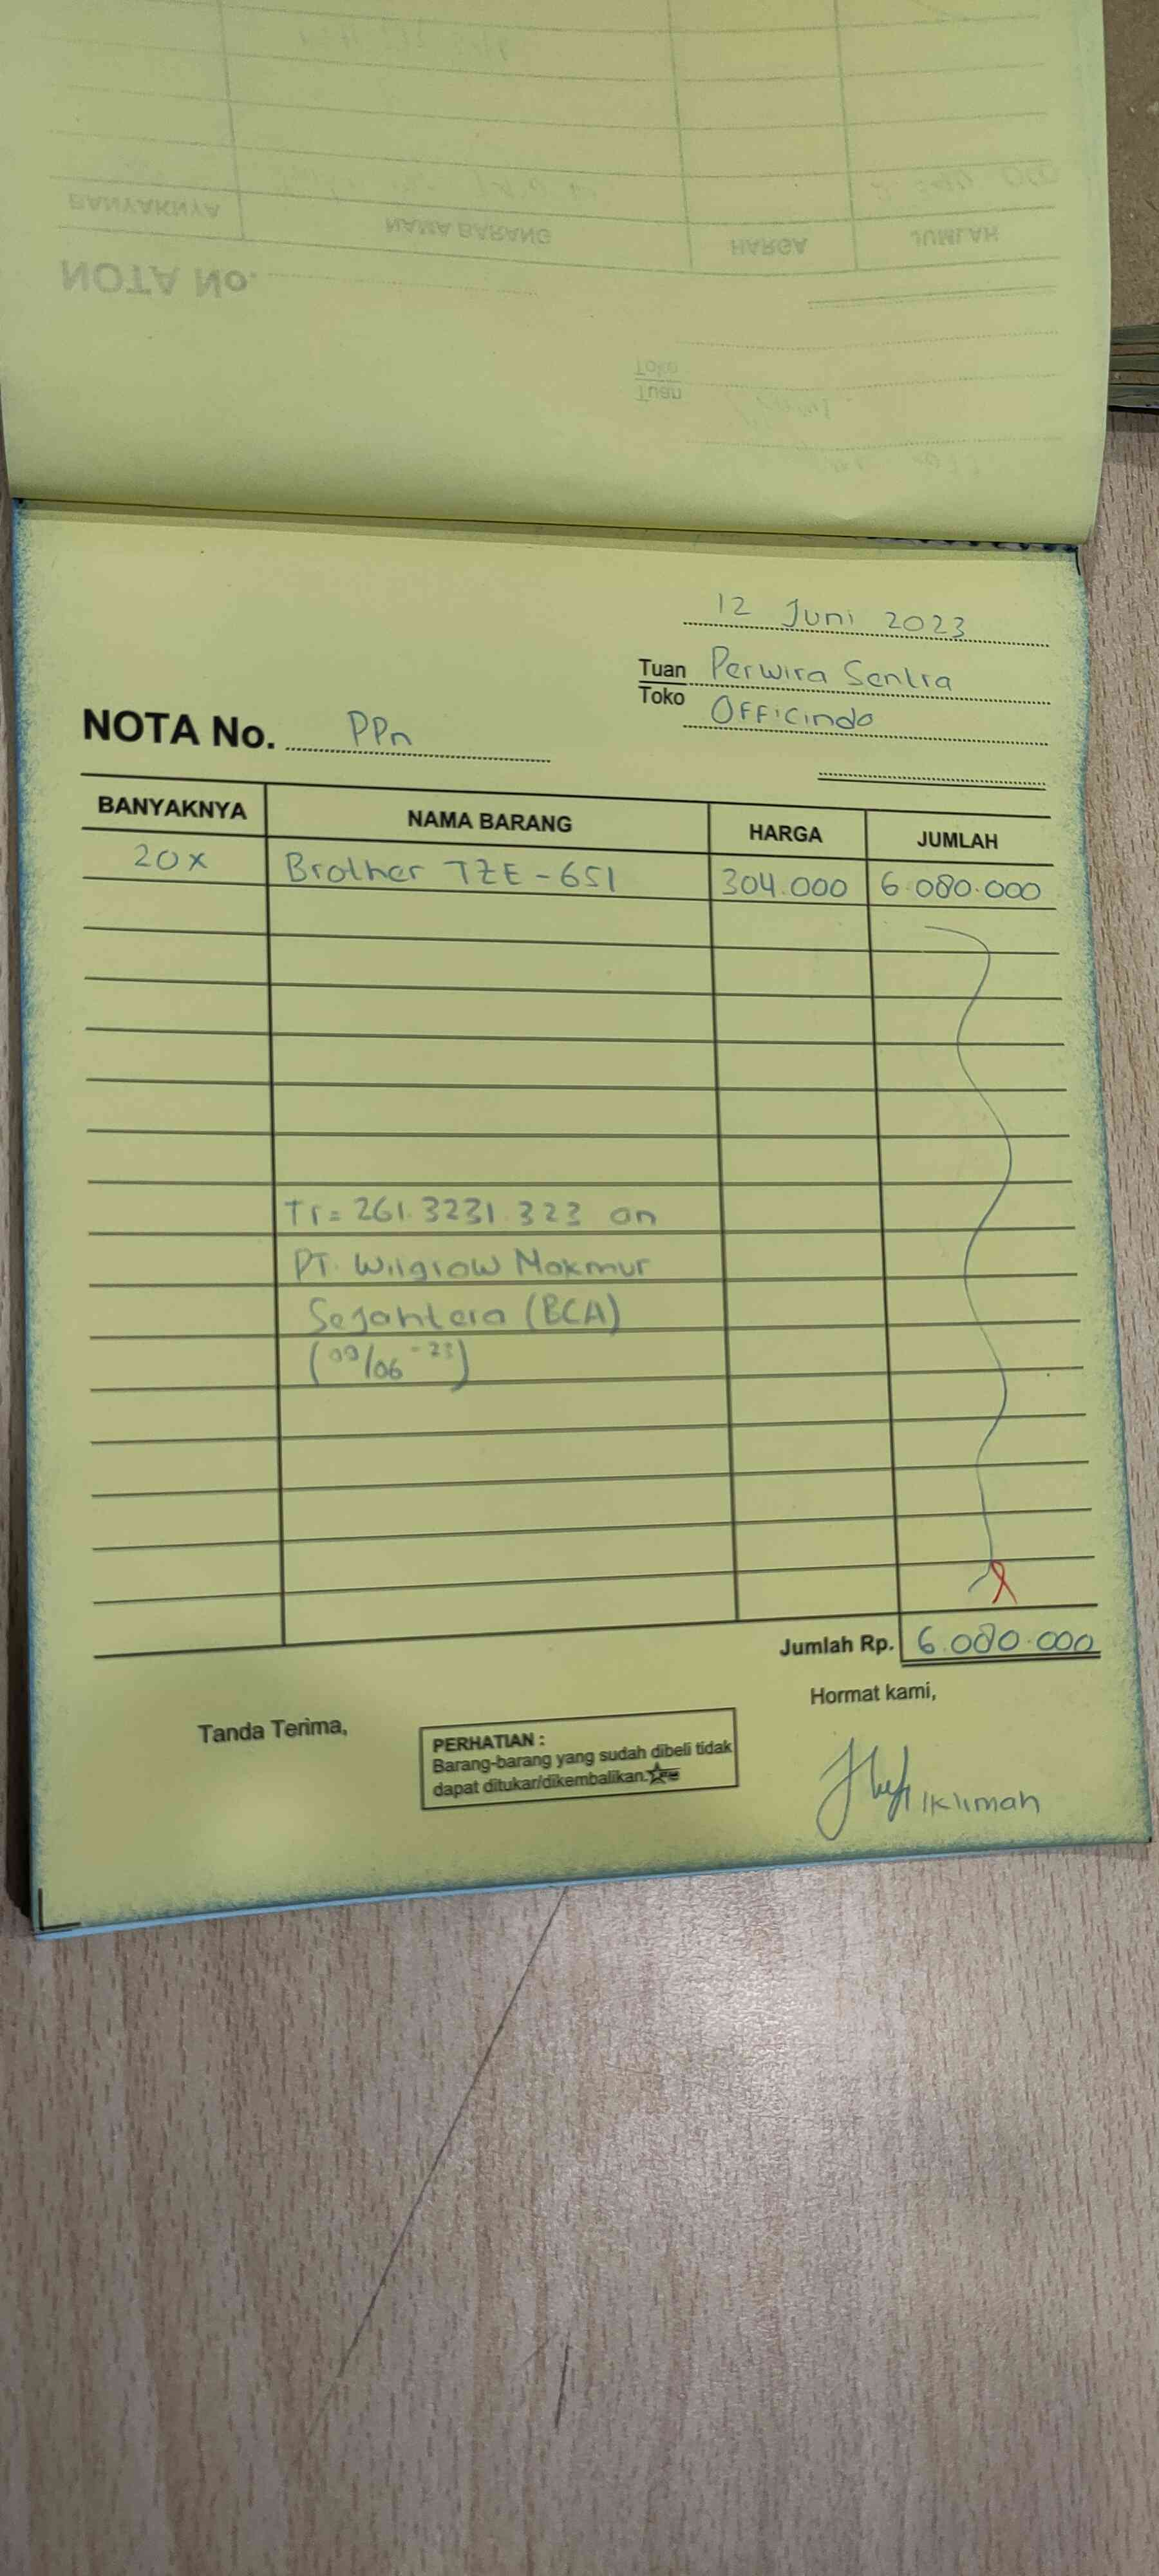 12 Juni 2023
Tuan Perwira Sentra
Toko Officindo
NOTA No. PPn
BANYAKNYA NAMA BARANG HARGA JUMLAH
20x Brother TZE-651 304.000 6.080.000
Tr= 261.3231.323 an
PT. Wilgrow Makmur
Sejahtera (BCA)
(09/06-23)
Jumlah Rp. 6.080.000
Hormat kami,
Tanda Terima,
PERHATIAN :
Barang-barang yang sudah dibeli tidak
dapat ditukar/dikembalikan.
Iklimah